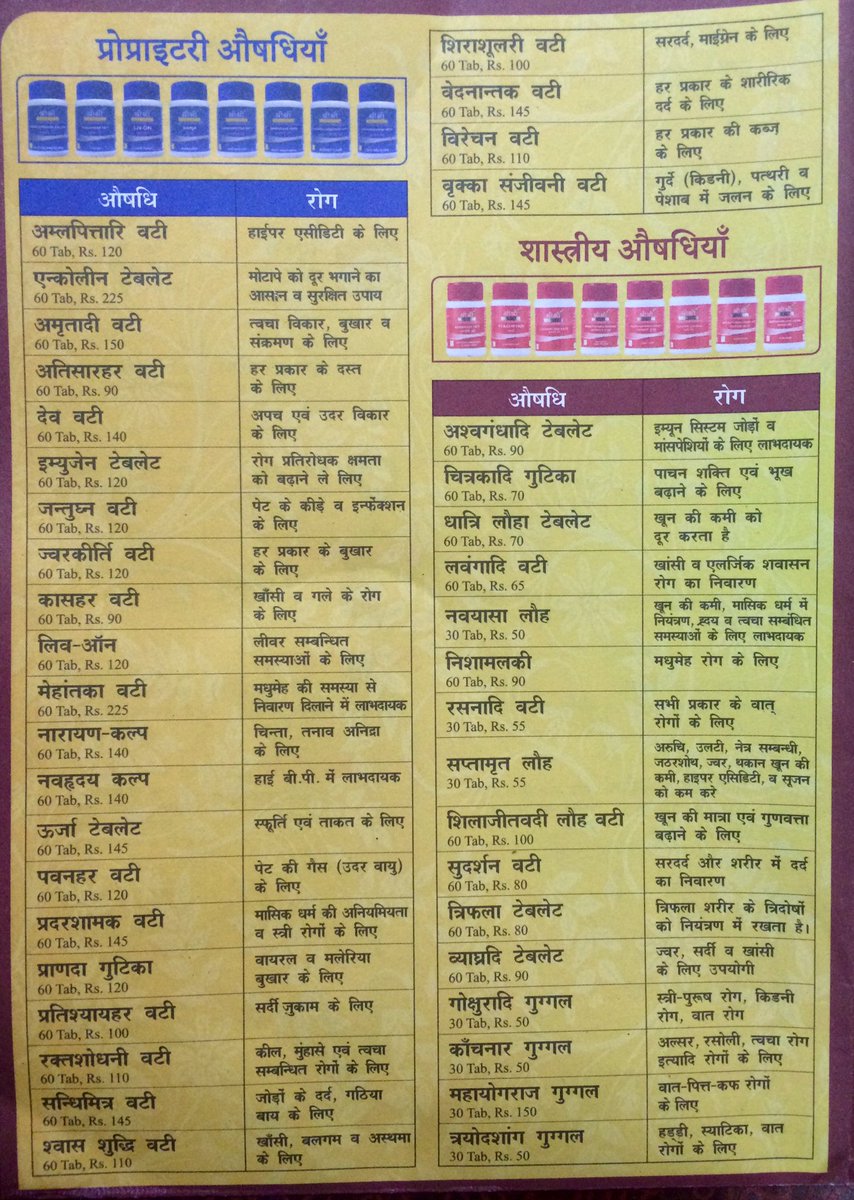 प्रोप्राइटरी औषधियाँ
औषधि रोग
अम्लपित्तारि वटी हाईपर एसीडिटी के लिए
60 Tab, Rs. 120
एन्कोलीन टेबलेट मोटापे को दूर भगाने का
60 Tab, Rs. 225 आसान व सुरक्षित उपाय
अमृतादी वटी त्वचा विकार, बुखार व
60 Tab, Rs. 150 संक्रमण के लिए
अतिसारहर वटी हर प्रकार के दस्त
60 Tab, Rs. 90 के लिए
देव वटी अपच एवं उदर विकार
60 Tab, Rs. 140 के लिए
इम्युजेन टेबलेट रोग प्रतिरोधक क्षमता
60 Tab, Rs. 120 को बढ़ाने ले लिए
जन्तुघ्न वटी पेट के कीड़े व इन्फेंक्शन
60 Tab, Rs. 120 के लिए
ज्वरकीर्ति वटी हर प्रकार के बुखार
60 Tab, Rs. 120 के लिए
कासहर वटी खाँसी व गले के रोग
60 Tab, Rs. 90 के लिए
लिव-ऑन लीवर सम्बन्धित
60 Tab, Rs. 120 समस्याओं के लिए
मेहांतका वटी मधुमेह की समस्या से
60 Tab, Rs. 225 निवारण दिलाने में लाभदायक
नारायण-कल्प चिन्ता, तनाव अनिद्रा
60 Tab, Rs. 140 के लिए
नवहृदय कल्प हाई बी.पी. में लाभदायक
60 Tab, Rs. 140
ऊर्जा टेबलेट स्फूर्ति एवं ताकत के लिए
60 Tab, Rs. 145
पवनहर वटी पेट की गैस (उदर वायु)
60 Tab, Rs. 120 के लिए
प्रदरशामक वटी मासिक धर्म की अनियमियता
60 Tab, Rs. 145 व स्त्री रोगों के लिए
प्राणदा गुटिका वायरल व मलेरिया
60 Tab, Rs. 120 बुखार के लिए
प्रतिश्यायहर वटी सर्दी जुकाम के लिए
60 Tab, Rs. 100
रक्तशोधनी वटी कील, मुंहासे एवं त्वचा
60 Tab, Rs. 110 सम्बन्धित रोगों के लिए
सन्धिमित्र वटी जोड़ों के दर्द, गठिया
60 Tab, Rs. 145 बाय के लिए
श्वास शुद्धि वटी खाँसी, बलगम व अस्थमा
60 Tab, Rs. 110 के लिए
शिराशूलरी वटी सरदर्द, माईग्रेन के लिए
60 Tab, Rs. 100
वेदनान्तक वटी हर प्रकार के शारीरिक
60 Tab, Rs. 145 दर्द के लिए
विरेचन वटी हर प्रकार की कब्ज
60 Tab, Rs. 110 के लिए
बृक्का संजीवनी वटी गुर्दे (किडनी), पत्थरी व
60 Tab, Rs. 145 पेशाब में जलन के लिए
शास्त्रीय औषधियाँ
औषधि रोग
अश्वगंधादि टेबलेट इम्यून सिस्टम जोड़ों व
60 Tab, Rs. 90 मांसपेशियों के लिए लाभदायक
चित्रकादि गुटिका पाचन शक्ति एवं भूख
60 Tab, Rs. 70 बढ़ाने के लिए
धात्रि लौहा टेबलेट खून की कमी को
60 Tab, Rs. 70 दूर करता है
लवंगादि वटी खांसी व एलर्जिक शवासन
60 Tab, Rs. 65 रोग का निवारण
नवयासा लौह खून की कमी, मासिक धर्म में
30 Tab, Rs. 50 नियंत्रण, ह्रदय व त्वचा सम्बंधित
समस्याओं के लिए लाभदायक
निशामलकी मधुमेह रोग के लिए
60 Tab, Rs. 90
रसनादि वटी सभी प्रकार के वात्
30 Tab, Rs. 55 रोगों के लिए
सप्तामृत लौह अरुचि, उलटी, नेत्र सम्बन्धी,
30 Tab, Rs. 55 जठरशोथ, ज्वर, थकान खून की
कमी, हाइपर एसिडिटी, व सूजन
को कम करे
शिलाजीतवदी लौह वटी खून की मात्रा एवं गुणवत्ता
60 Tab, Rs. 100 बढ़ाने के लिए
सुदर्शन वटी सरदर्द और शरीर में दर्द
60 Tab, Rs. 80 का निवारण
त्रिफला टेबलेट त्रिफला शरीर के त्रिदोषों
60 Tab, Rs. 80 को नियंत्रण में रखता है।
व्याघ्रदि टेबलेट ज्वर, सर्दी व खांसी
60 Tab, Rs. 90 के लिए उपयोगी
गोक्षुरादि गुग्गल स्त्री-पुरूष रोग, किडनी
30 Tab, Rs. 50 रोग, वात रोग
काँचनार गुग्गल अल्सर, रसोली, त्वचा रोग
30 Tab, Rs. 50 इत्यादि रोगों के लिए
महायोगराज गुग्गल वात-पित्त-कफ रोगों
30 Tab, Rs. 150 के लिए
त्रयोदशांग गुग्गल हडडी, स्याटिका, वात
30 Tab, Rs. 50 रोगों के लिए